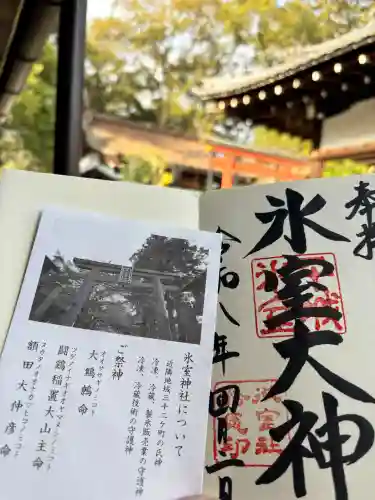 奉拝
氷室大神
令和八年四月二日
氷室神社について
近隣地域三十二ケ町の氏神
冷凍、冷蔵、製氷販売業の守護神
冷凍、冷蔵技術の守護神
ご祭神
オオサザキノミコト
大鷦鷯命
ツゲノイナギオオヤマヌシノミコト
闘鶏稲置大山主命
ヌカタノオオナカツヒコノミコト
額田大仲彦命